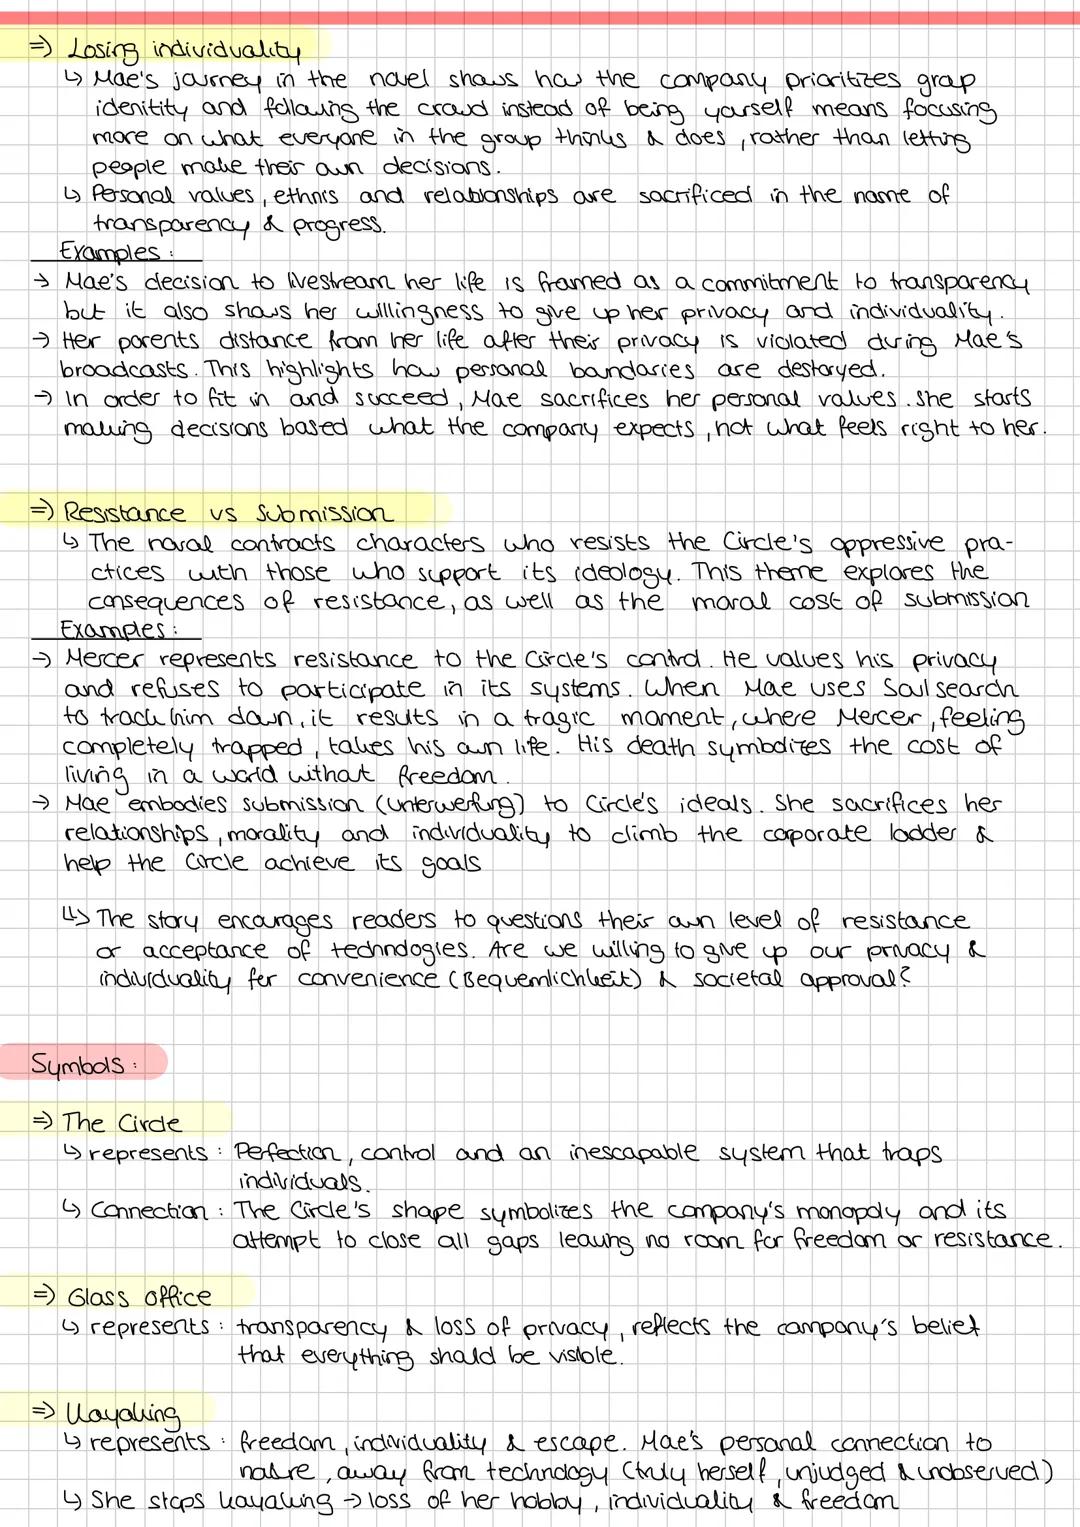 => Losing individuality
↳ Mae's journey in the novel shows how the company prioritizes group
idenitity and following the crowd instead of being yourself means focusing
more on what everyone in the group thinks & does, rather than letting
people make their own decisions.
↳ Personal values, ethnis and relationships are sacrificed in the name of
transparency & progress.
Examples:
→ Mae's decision to livestream her life is framed as a commitment to transparency
but it also shows her willingness to give up her privacy and individuality.
→ Her parents distance from her life after their privacy is violated during Mae's
broadcasts. This highlights how personal boundaries are destoryed.
→ In order to fit in and succeed, Mae sacrifices her personal values. She starts
making decisions based what the company expects, not what feels right to her.
=> Resistance vs Submission
↳ The noval contracts characters who resists the Circle's oppressive pra-
ctices with those who support its ideology. This theme explores the
consequences of resistance, as well as the moral cost of submission
Examples:
→ Mercer represents resistance to the Circle's control. He values his privacy
and refuses to participate in its systems. When Mae uses Soulsearch
to track him down, it results in a tragic moment, where Mercer, feeling
completely trapped, takes his own life. His death symbolizes the cost of
living in a world without freedom.
→ Mae embodies submission (Unterwerfung) to Circle's ideals. She sacrifices her
relationships, morality and individuality to climb the corporate ladder &
help the Circle achieve its goals
↳ The story encourages readers to questions their own level of resistance
or acceptance of technologies. Are we willing to give up our privacy &
individuality for convenience (Bequemlichkeit) & societal approval?
Symbols:
=> The Circle
↳ represents: Perfection, control and an inescapable system that traps
individuals.
↳ Connection: The Circle's shape symbolizes the company's monopoly and its
attempt to close all gaps leaving no room for freedom or resistance.
=> Glass office
↳ represents: transparency & loss of privacy, reflects the company's belief
that everything should be visible.
=> Kayaking
↳ represents: freedom, individuality & escape. Mae's personal connection to
nature, away from technology (truly herself, unjudged & unobserved)
↳ She stops kayaking → loss of her hobby, individuality & freedom